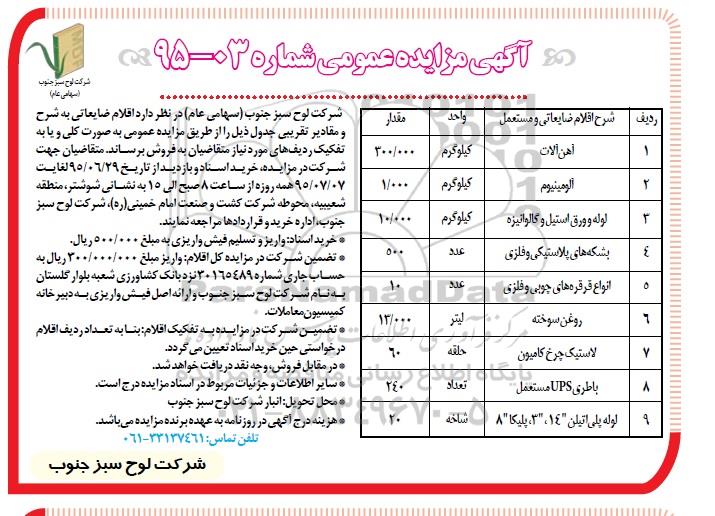 آگهی مزایده عمومی شماره ۰۳-۹۵
شرکت لوح سبز جنوب
(سهامی عام)
شرکت لوح سبز جنوب (سهامی عام) در نظر دارد اقلام ضایعاتی به شرح
و مقادیر تقریبی جدول ذیل را از طریق مزایده عمومی به صورت کلی و یا به
تفکیک ردیف‌های مورد نیاز متقاضیان به فروش برساند. متقاضیان جهت
شرکت در مزایده، خرید اسناد و بازدید از تاریخ ۹۵/۰۶/۲۹ لغایت
۹۵/۰۷/۰۷ همه روزه از ساعت ۸ صبح الی ۱۵ به نشانی شوشتر، منطقه
شعیبیه، محوطه شرکت کشت و صنعت امام خمینی(ره)، شرکت لوح سبز
جنوب، اداره خرید و قراردادها مراجعه نمایند.
* خرید اسناد: واریز و تسلیم فیش واریزی به مبلغ ۵۰۰/۰۰۰ ریال.
* تضمین شرکت در مزایده کل اقلام: واریز مبلغ ۳۰۰/۰۰۰/۰۰۰ ریال به
حساب جاری شماره ۳۰۱۶۵۴۸۹ نزد بانک کشاورزی شعبه بلوار گلستان
به نام شرکت لوح سبز جنوب و ارائه اصل فیش واریزی به دبیرخانه
کمیسیون معاملات.
* تضمین شرکت در مزایده به تفکیک اقلام: بنا به تعداد ردیف اقلام
درخواستی حین خرید اسناد تعیین می‌گردد.
* در مقابل فروش، وجه نقد دریافت خواهد شد.
* سایر اطلاعات و جزئیات مربوط در اسناد مزایده درج است.
* محل تحویل: انبار شرکت لوح سبز جنوب
* هزینه درج آگهی در روزنامه به عهده برنده مزایده می‌باشد.
تلفن تماس: ۳۳۱۳۷۴۶۱-۰۶۱
شرکت لوح سبز جنوب
ردیف شرح اقلام ضایعاتی و مستعمل واحد مقدار
۱ آهن آلات کیلوگرم ۳۰۰/۰۰۰
۲ آلومینیوم کیلوگرم ۱/۰۰۰
۳ لوله و ورق استیل و گالوانیزه کیلوگرم ۱۰/۰۰۰
۴ بشکه‌های پلاستیکی و فلزی عدد ۵۰۰
۵ انواع قرقره‌های چوبی و فلزی عدد ۱۰
۶ روغن سوخته لیتر ۱۳/۰۰۰
۷ لاستیک چرخ کامیون حلقه ۶۰
۸ باطری UPS مستعمل تعداد ۲۴۰
۹ لوله پلی اتیلن "۱۴، "۳، پلیکا "۸ شاخه ۲۰
ParsNamadData
پایگاه اطلاع رسانی مناقصه و مزایده
۰۲۱-۸۸۳۴۹۶۷۰-۵